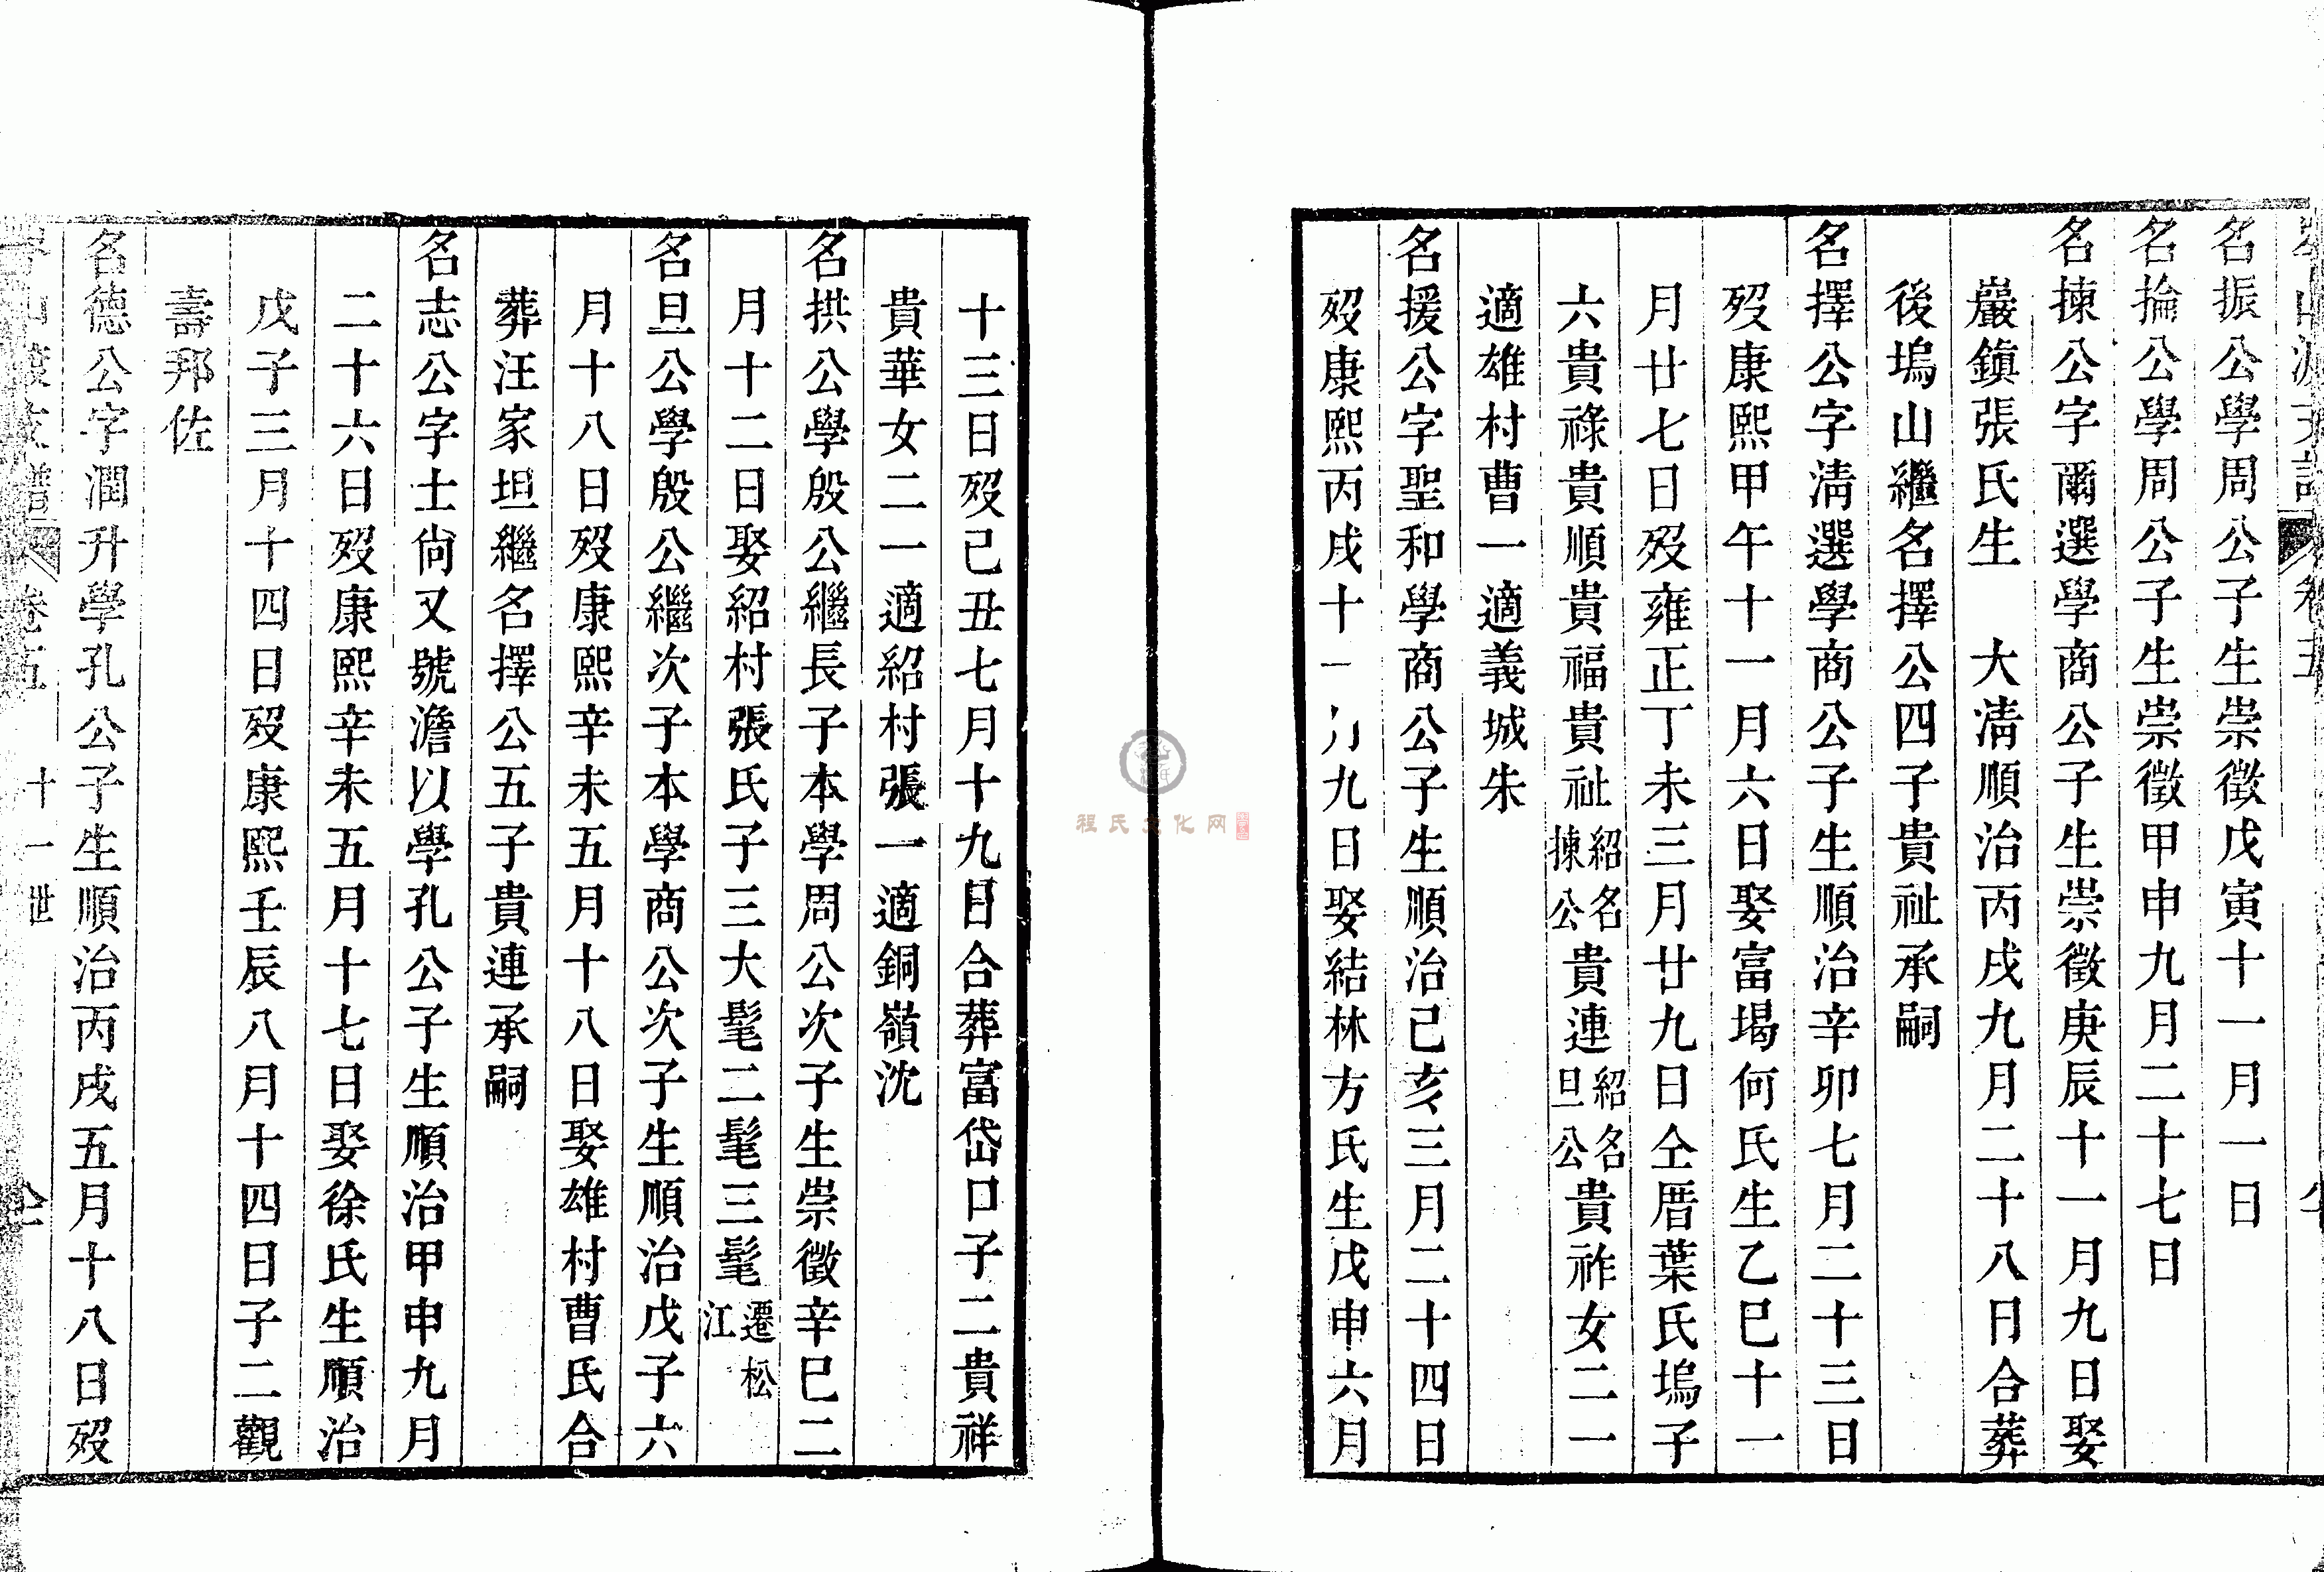 名振公學周公子生崇徵戊寅十一月一日
名掄公學周公子生崇徵甲申九月二十七日
名揀公字爾選學商公子生崇徵庚辰十一月九日娶
巖鎮張氏生 大淸順治丙戌九月二十八日合葬
後塢山繼名擇公四子貴祉承嗣
名擇公字淸選學商公子生順治辛卯七月二十三日
歿康熙甲午十一月六日娶富堨何氏生乙巳十一
月廿七日歿雍正丁未三月廿九日仝厝葉氏塢子
六貴祿貴順貴福貴祉紹名揀公貴連紹名旦公貴祚女二一
適雄村曹一適義城朱
名援公字聖和學商公子生順治己亥三月二十四日
歿康熙丙戌十一月九日娶結林方氏生戊申六月
十三日歿己丑七月十九日合葬富岱口子二貴祥
貴華女二一適紹村張一適銅嶺沈
名拱公學殷公繼長子本學周公次子生崇徵辛巳二
月十二日娶紹村張氏子三大髦二髦三髦遷松江
名旦公學殷公繼次子本學商公次子生順治戊子六
月十八日歿康熙辛未五月十八日娶雄村曹氏合
葬汪家坦繼名擇公五子貴連承嗣
名志公字士尙又號澹以學孔公子生順治甲申九月
二十六日歿康熙辛未五月十七日娶徐氏生順治
戊子三月十四日歿康熙壬辰八月十四日子二觀
壽邦佐
名德公字潤升學孔公子生順治丙戌五月十八日歿
卷五 十一世
程氏文化网